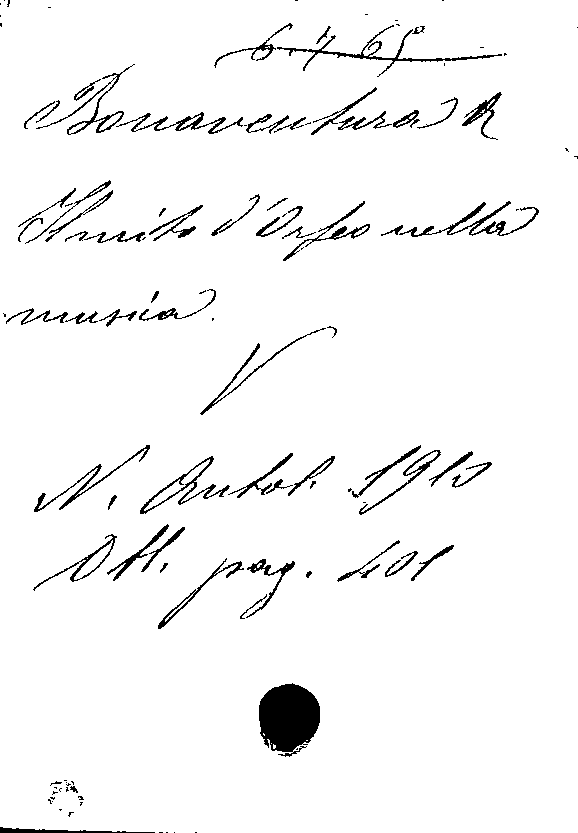 6.7.65
Bonaventura A
Il mito d'Orfeo nella
musica.
V
N. Antol. 1913
Ott. pag. 401